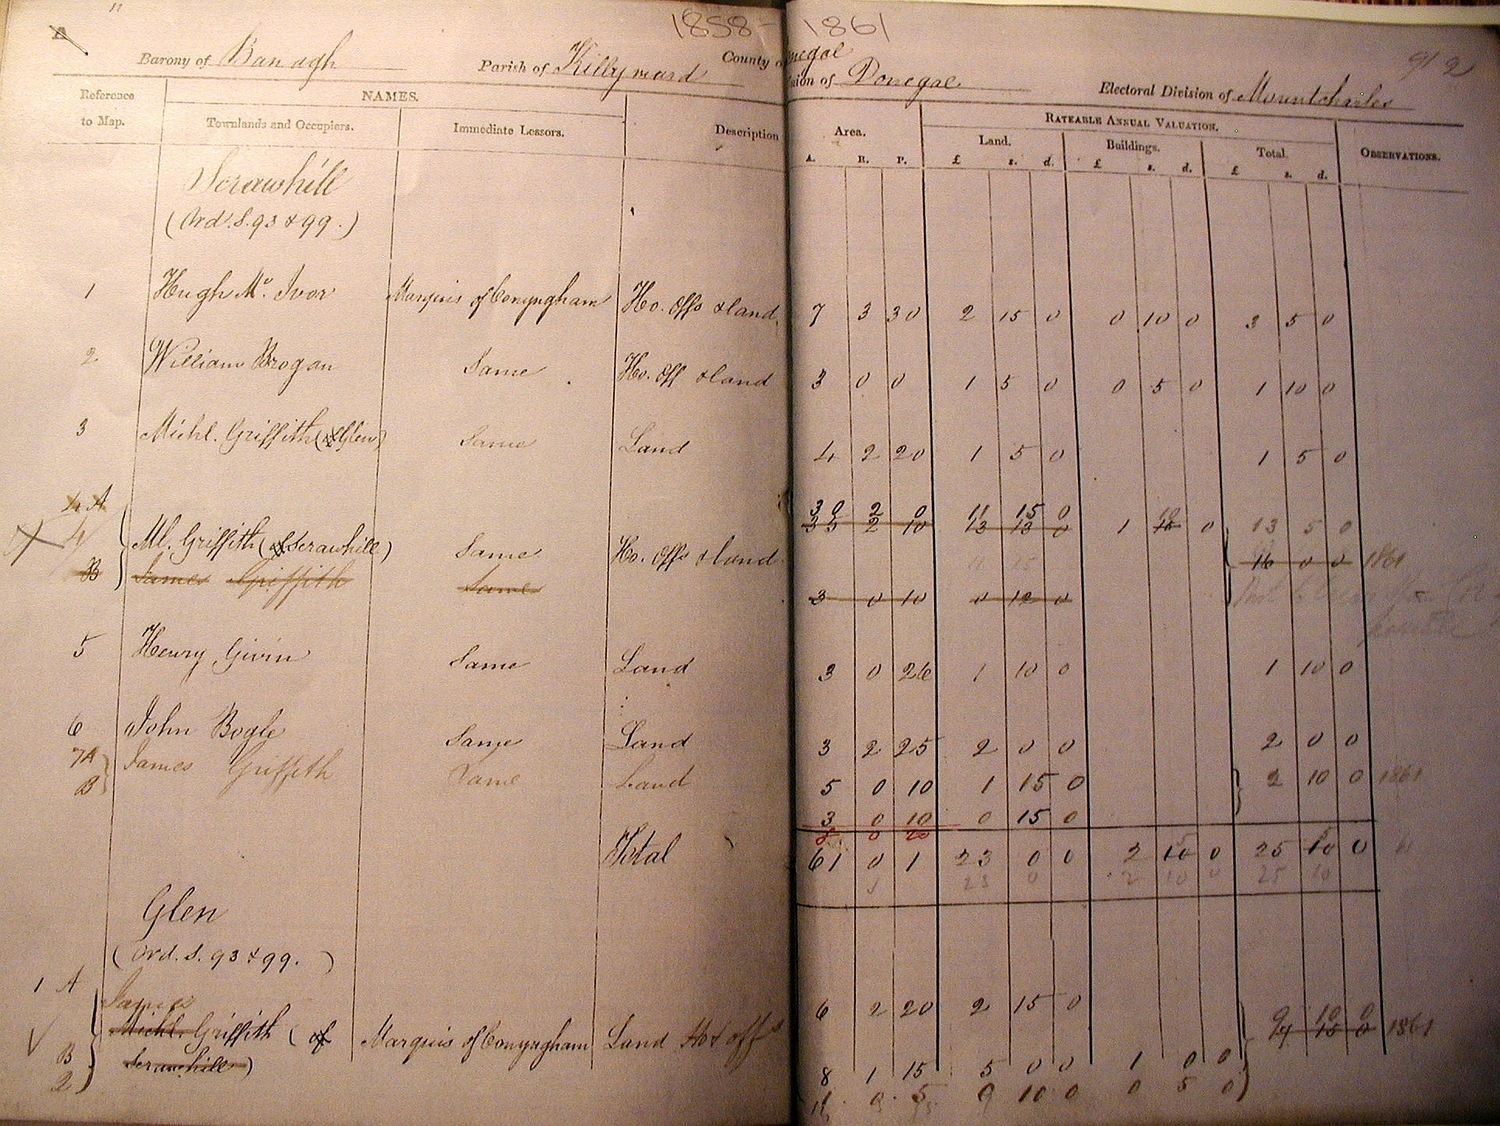 1858- 1861
Barony of Banagh Parish of Killymard County of Donegal
Union of Donegal Electoral Division of Mountcharles 912
Reference to Map. NAMES. Area. RATEABLE ANNUAL VALUATION. OBSERVATIONS.
Townlands and Occupiers. Immediate Lessors. Description Land. Buildings. Total.
A. R. P. £ s. d. £ s. d. £ s. d.
Scrawhill
(Ord. S. 93 & 99.)
1 Hugh Mc. Ivor Marquis of Conyngham Ho. Offs & land 7 3 30 2 15 0 0 10 0 3 5 0
2 William Brogan Same Ho. Off & land 3 0 0 1 5 0 0 5 0 1 10 0
3 Michl. Griffith (of Glen) Same Land 4 2 20 1 5 0 1 5 0
4 A 30 2 0 11 15 0 10
35 2 10 13 13 0 1 15 0 13 5 0
4 Ml. Griffith (of Scrawhill) Same Ho. Offs & land 11 15
16 0 0 1861
B James Griffith Same 3 0 10 0 12 0
5 Henry Givin Same Land 3 0 26 1 10 0 1 10 0
6 John Bogle Same Land 3 2 25 2 0 0 2 0 0
7A James Griffith Same Land 5 0 10 1 15 0 2 10 0 1861
B 3 0 10 0 15 0
8 0 20
Total 61 0 1 23 0 0 2 10 0 25 10 0
23 0 2 10 0 25 10
Glen
(Ord. S. 93 & 99.)
1 A James 6 2 20 2 15 0 9 10 0
Michl. Griffith (of Marquis of Conyngham Land Ho & offs 1861
B Scrawhill) 8 1 15 5 0 0 1 0 0
2 0 5 9 10 0 0 5 0